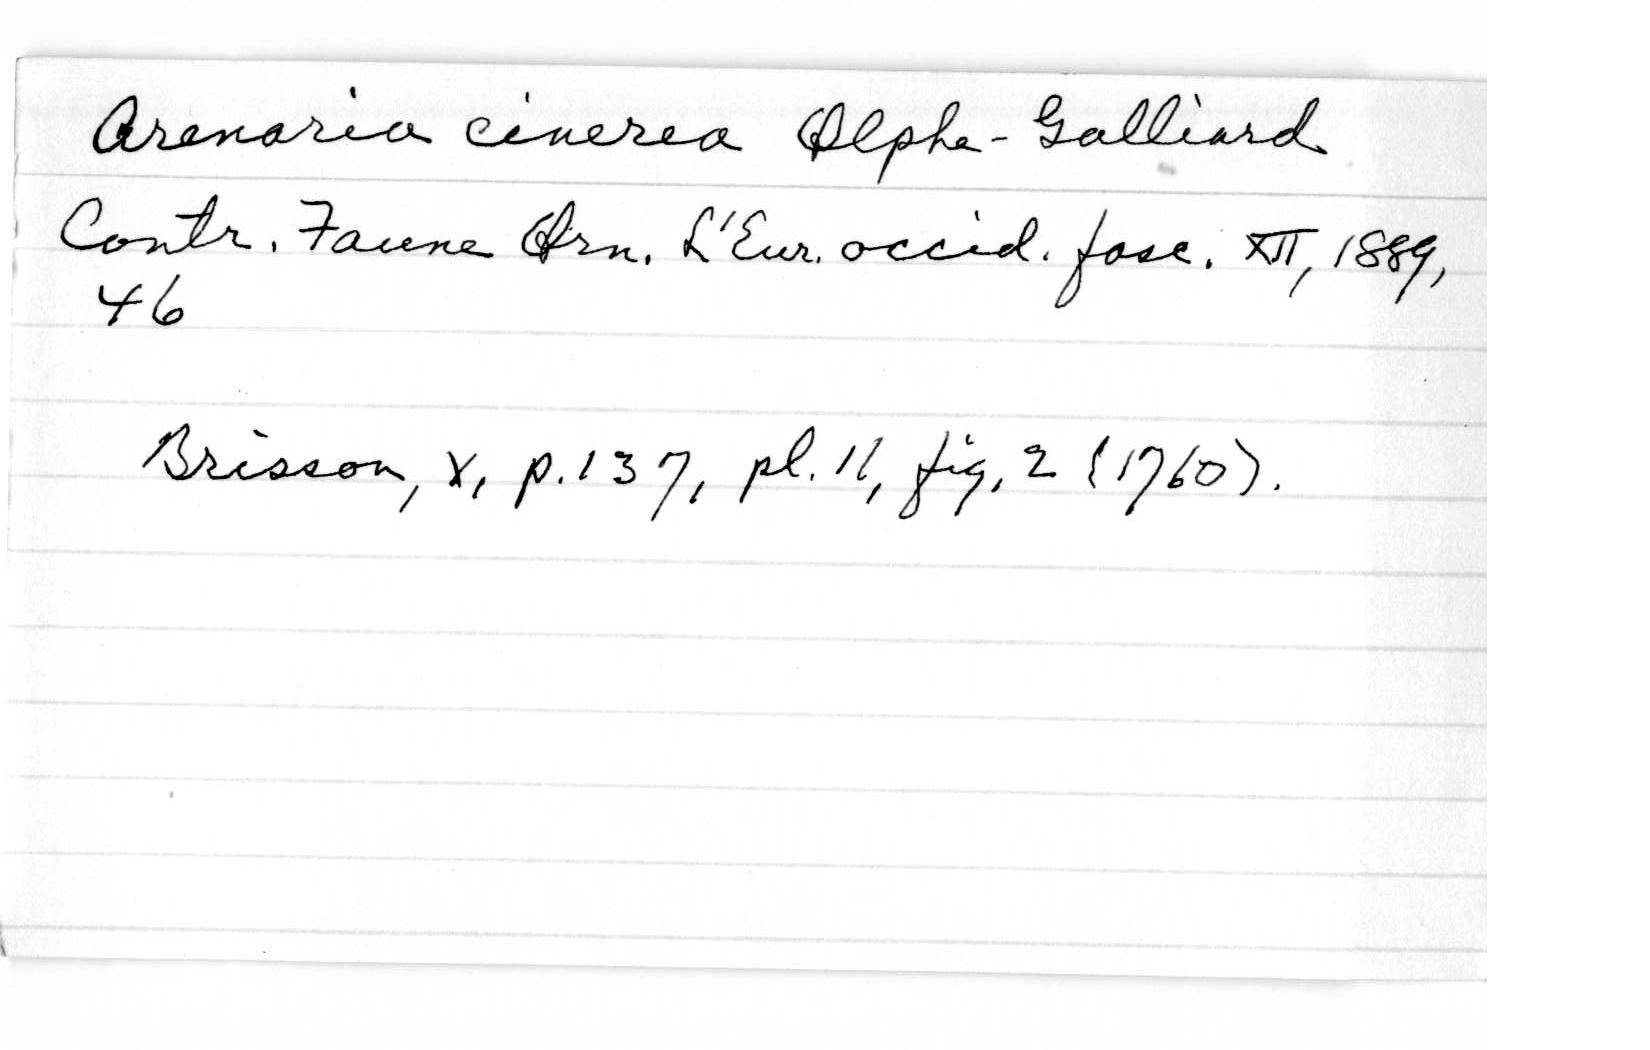 Arenaria cinerea Olphe-Galliard
Contr. Faune Orn. L'Eur. occid. fasc. XII, 1889,
46
Brisson, V, p. 137, pl. 11, fig, 2 (1760).